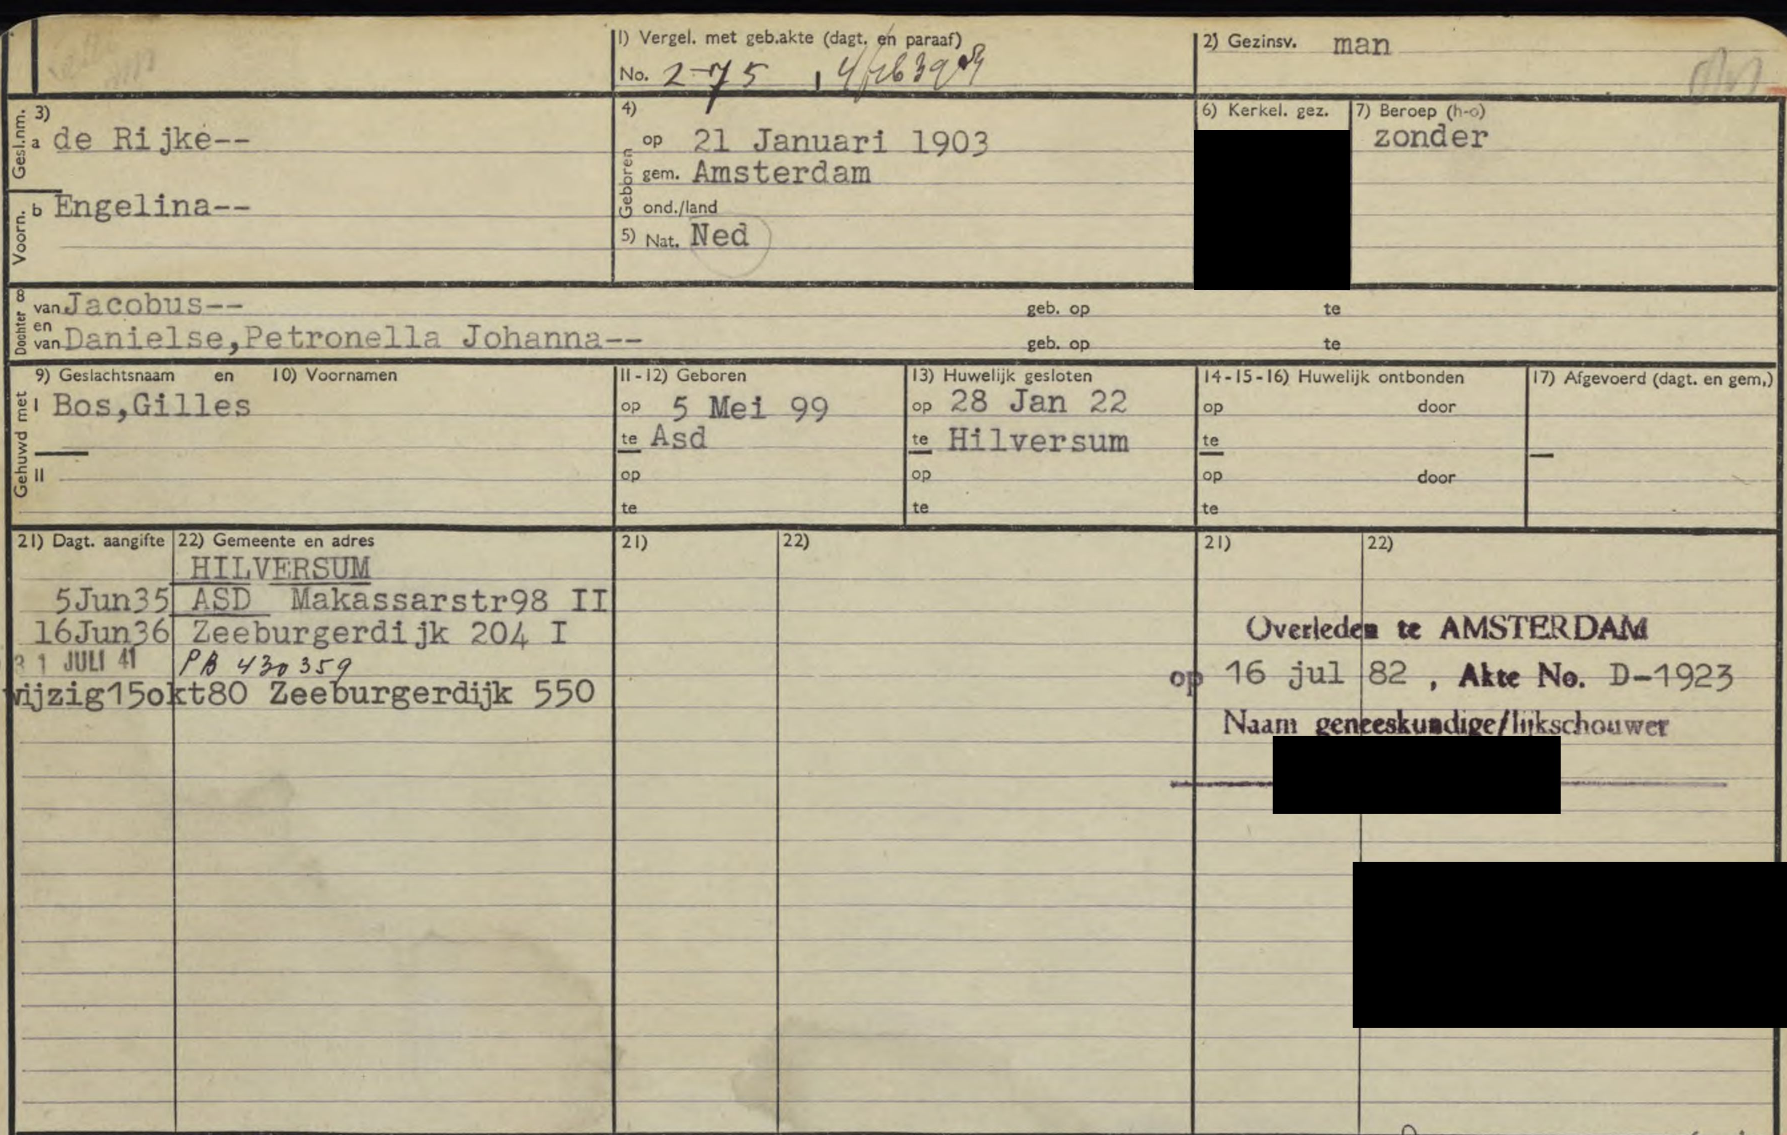 1) Vergel. met geb.akte (dagt. en paraaf)
No. 2-75 , 4 feb 39
2) Gezinsv. man
Gesl.nm. 3)
a de Rijke--
Voorn. b Engelina--
4)
Geboren op 21 Januari 1903
gem. Amsterdam
ond./land
5) Nat. Ned
6) Kerkel. gez.
7) Beroep (h-o)
zonder
Dochter 8 van Jacobus-- geb. op te
en van Danielse,Petronella Johanna-- geb. op te
Gehuwd met
9) Geslachtsnaam en 10) Voornamen
I Bos,Gilles
II
11-12) Geboren
op 5 Mei 99
te Asd
op
te
13) Huwelijk gesloten
op 28 Jan 22
te Hilversum
op
te
14-15-16) Huwelijk ontbonden
op door
te
op door
te
17) Afgevoerd (dagt. en gem.)
21) Dagt. aangifte 22) Gemeente en adres
HILVERSUM
5Jun35 ASD Makassarstr98 II
16Jun36 Zeeburgerdijk 204 I
31 JULI 41 PB 430359
wijzig15okt80 Zeeburgerdijk 550
21) 22)
21) 22)
Overleden te AMSTERDAM
op 16 jul 82 , Akte No. D-1923
Naam geneeskundige/lijkschouwer